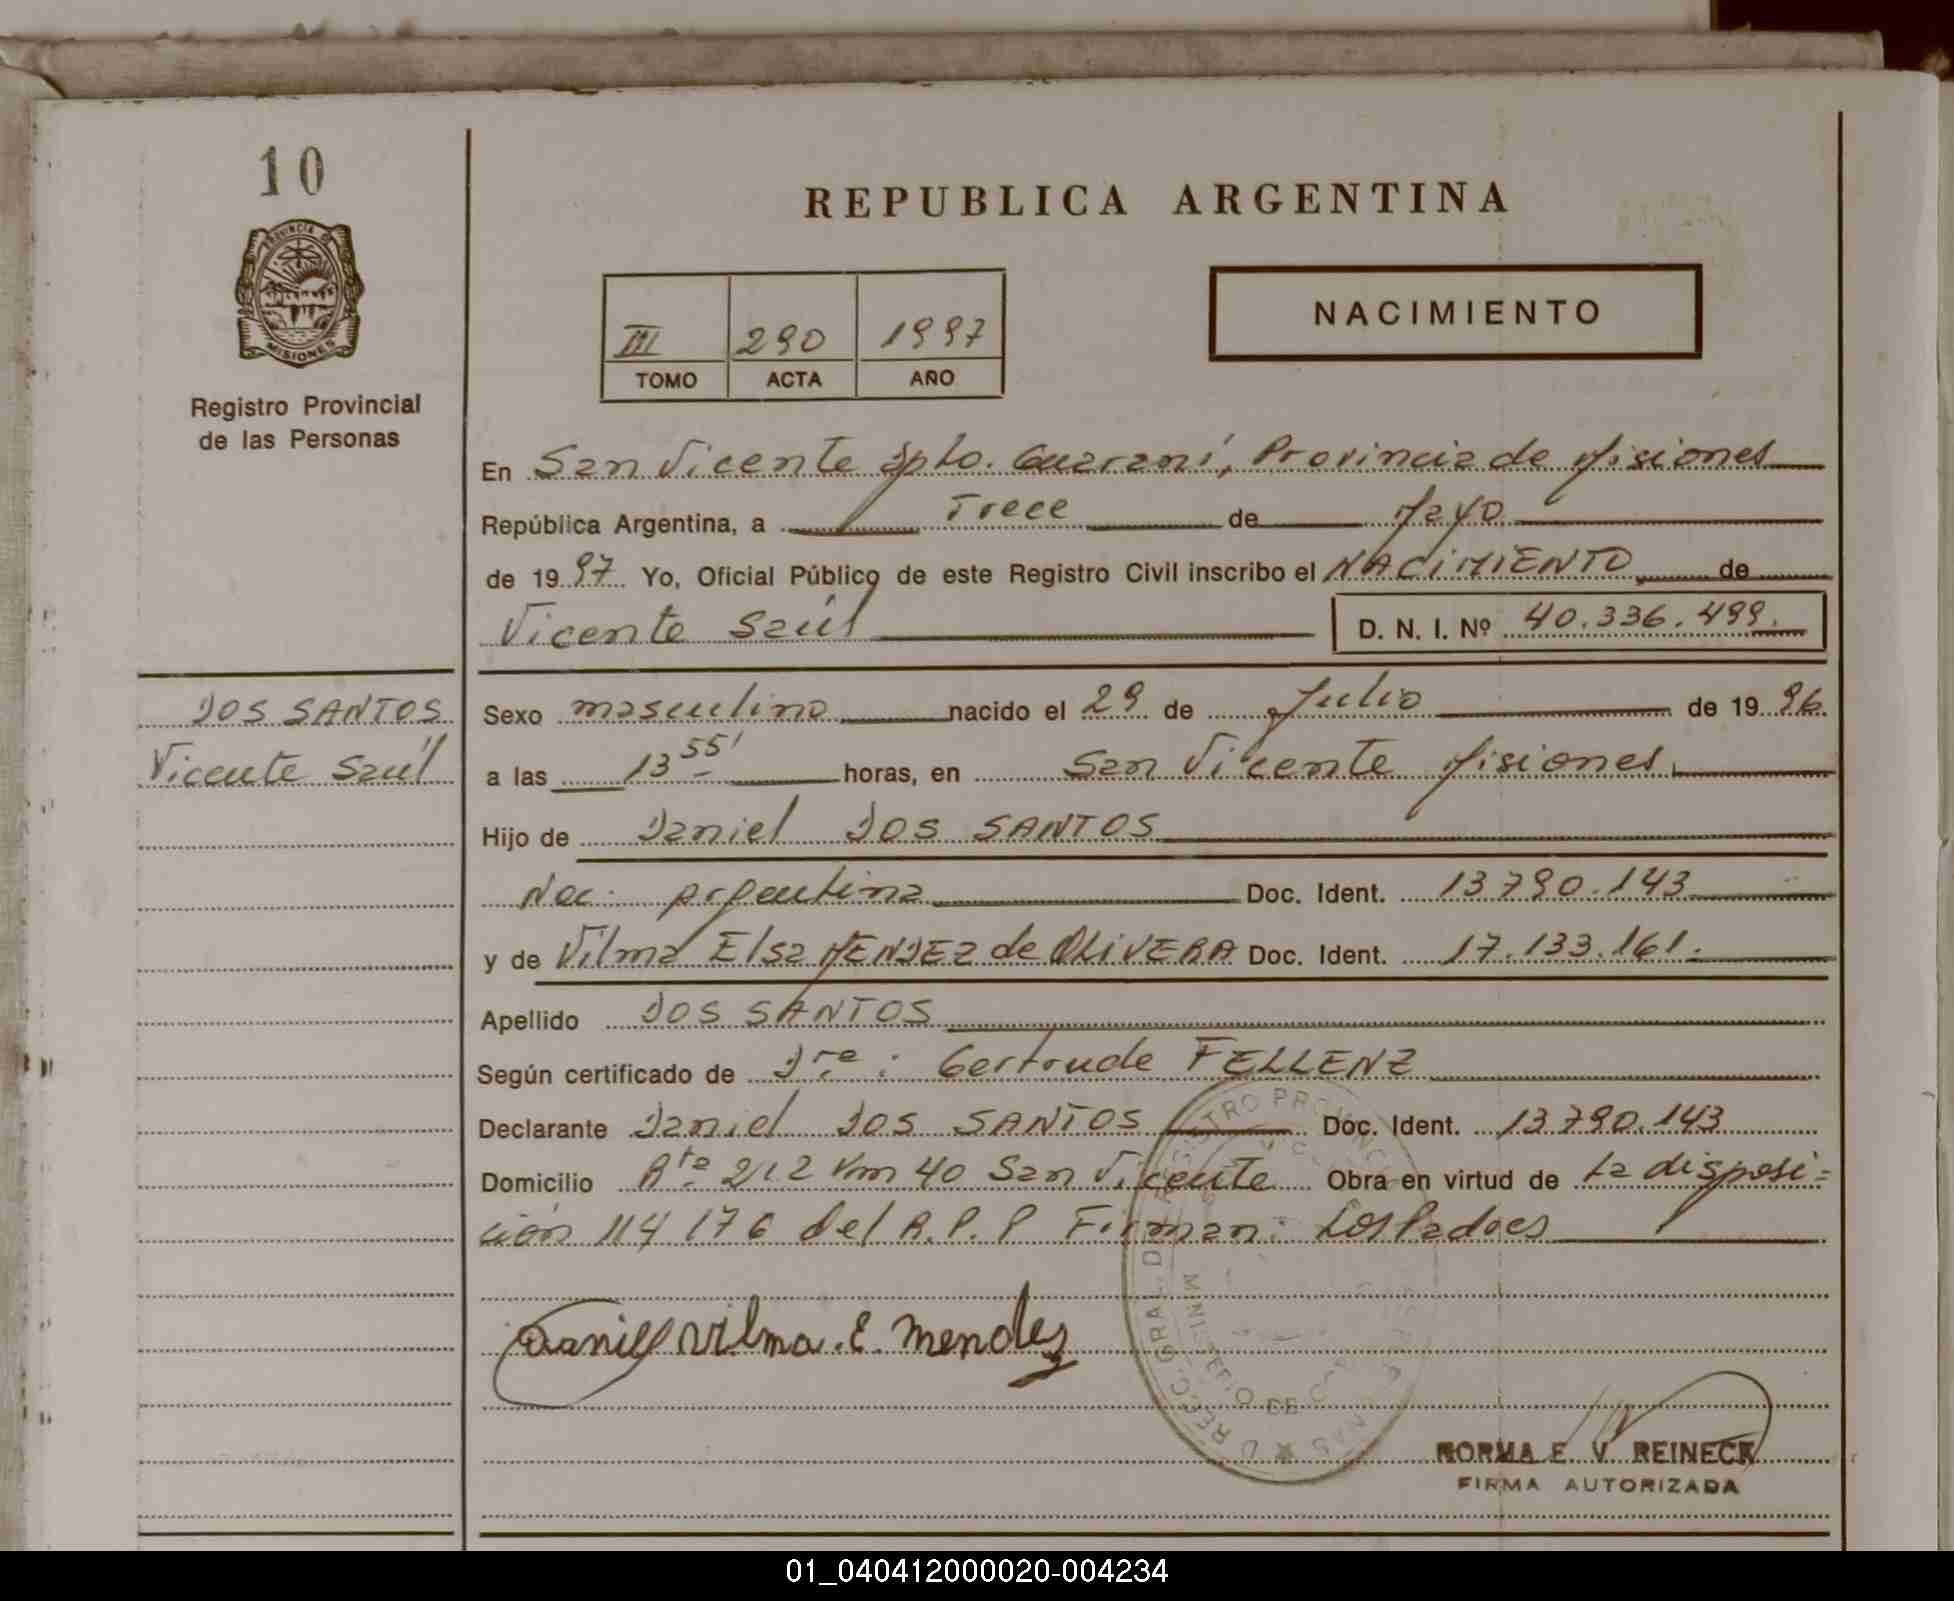 10
REPUBLICA ARGENTINA
PROVINCIA DE
MISIONES
Registro Provincial
de las Personas
NACIMIENTO
III 290 1997
TOMO ACTA AÑO
En San Vicente Dpto. Guaraní, Provincia de Misiones
República Argentina, a Trece de Mayo
de 1997 Yo, Oficial Público de este Registro Civil inscribo el NACIMIENTO de
Vicente Saúl D. N. I. Nº 40.336.499.
DOS SANTOS
Vicente Saúl
Sexo masculino nacido el 29 de Julio de 1996.
a las 13 55' horas, en San Vicente Misiones
Hijo de Daniel DOS SANTOS
Nac. Argentina Doc. Ident. 13.790.143
y de Vilma Elsa MENDEZ de OLIVERA Doc. Ident. 17.133.161.
Apellido DOS SANTOS
Según certificado de Dra: Gertrude FELLENZ
Declarante Daniel DOS SANTOS Doc. Ident. 13.790.143
Domicilio Rta 212 Km 40 San Vicente Obra en virtud de La disposi=
ción 114/76 del R.P.P Firman: Los Padres
Daniel Vilma. E. Mendez
NORMA E. V. REINECK
FIRMA AUTORIZADA
01_040412000020-004234